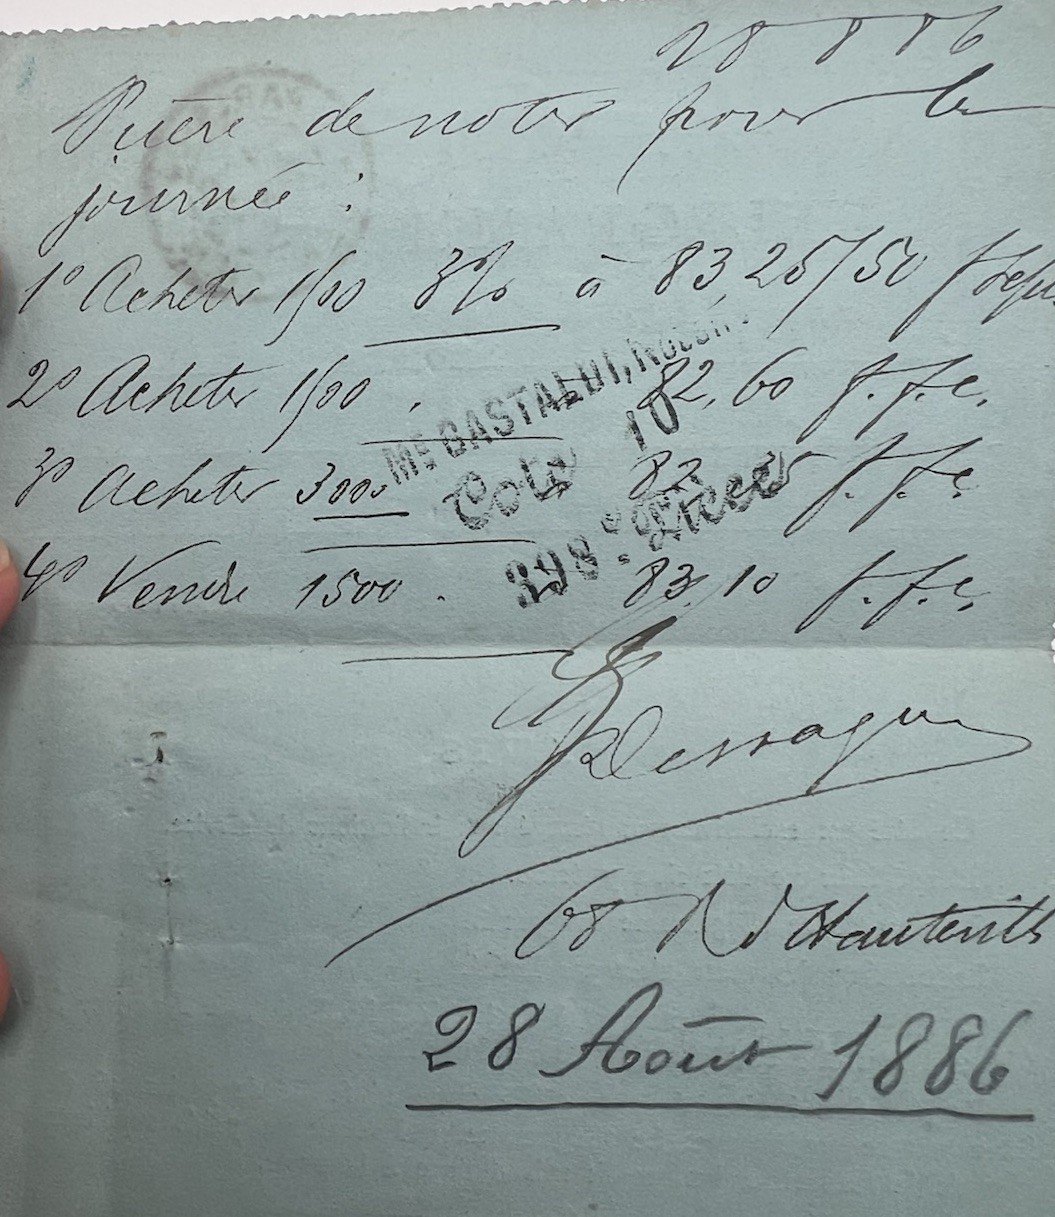 28 8 86
Prière de noter pour la
journée :
1° Acheter 1500 3% à 83,25/50
2° Acheter 1500 . 82,60 f.f.c.
3° Acheter 3000 82, f.f.c.
4° Vendre 1500 . 83,10 f.f.c.
Me GASTALDI,
Cote 10
398e Pièce
68 R d'Hauteville
28 Août 1886